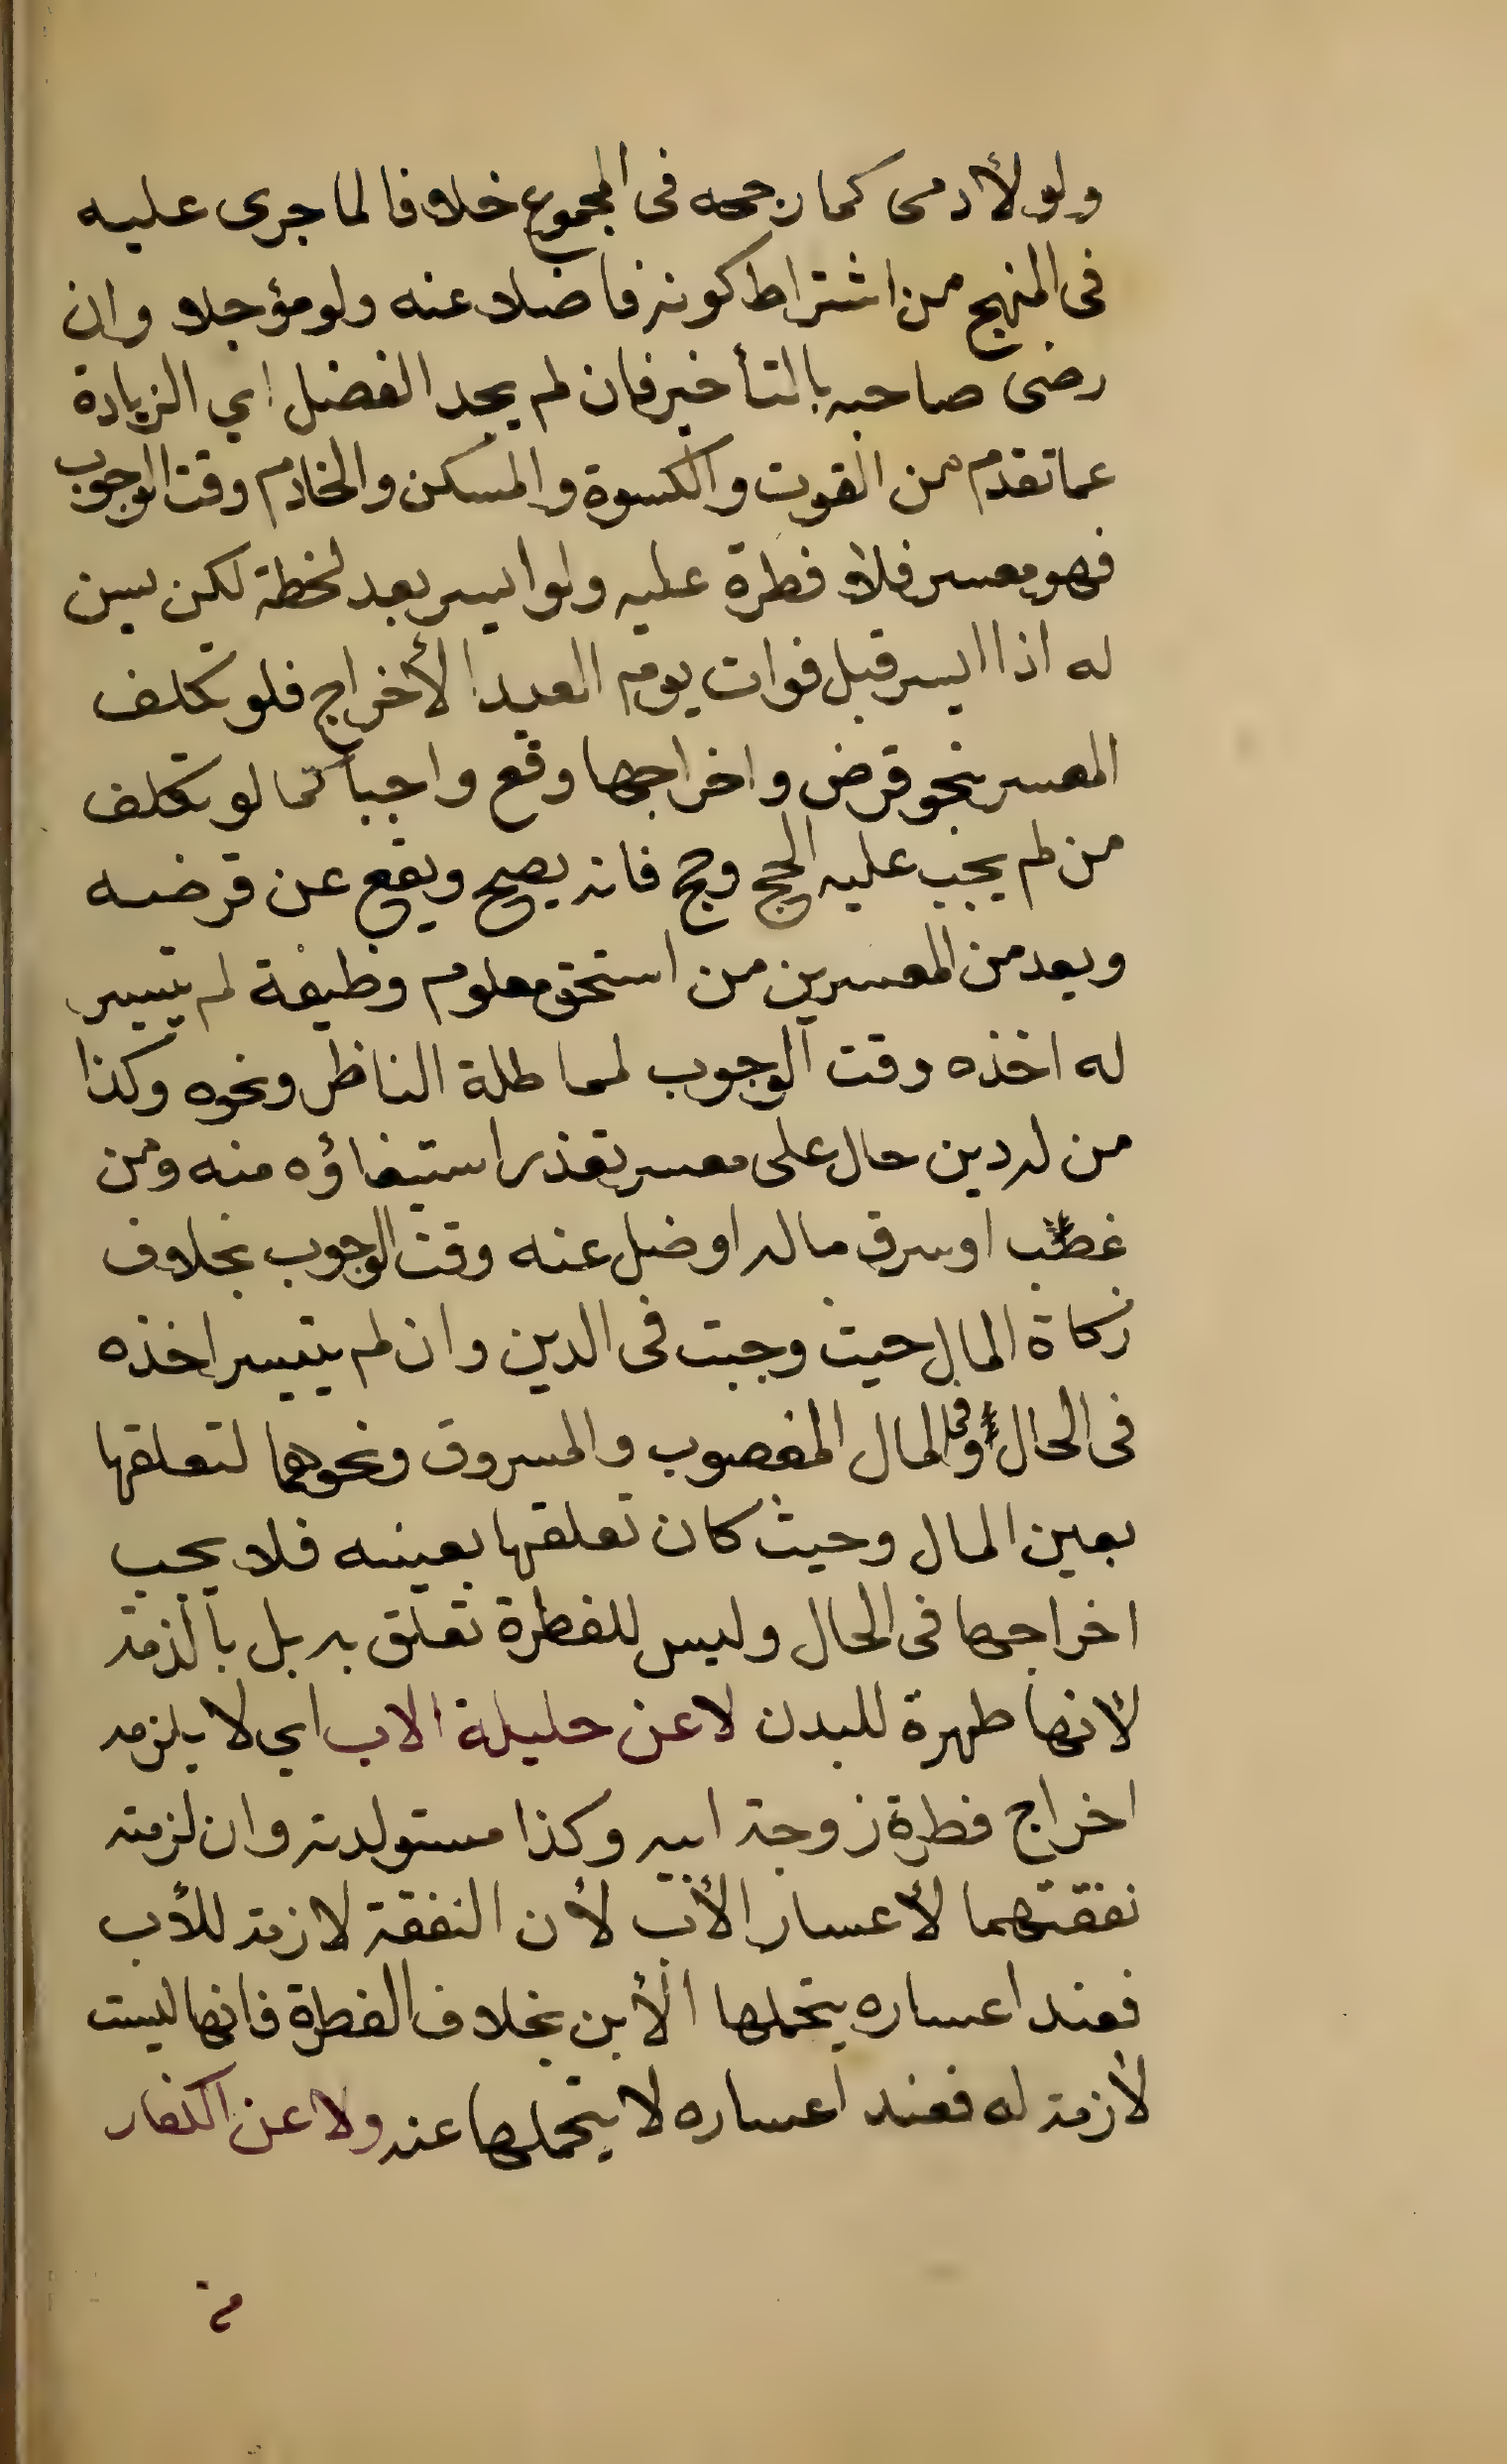 ولو لأدمى كما رجحه فى المجموع خلافا لما جرى عليه
فى المنهج من اشتراط كونه فاضلا عنه ولو مؤجلا وان
رضى صاحبه بالتأخير فان لم يجد الفضل اي الزيادة
عما تقدم من القوت والكسوة والمسكن والخادم وقت الوجوب
فهو معسر فلا فطرة عليه ولو ايسر بعد لخطة لكن يسن
له اذا ايسر قبل فوات يوم العيد الأخراج فلو تكلف
المعسر بنحو قرض واخراجها وقع واجبا كما لو تكلف
من لم يجب عليه الحج وحج فانه يصح ويقع عن فرضه
ويعد من المعسرين من استحق معلوم وظيفة لم يتيسر
له اخذه وقت الوجوب لمماطلة الناظر ونحوه وكذا
من له دين حال على معسر تعذر استيفاؤه منه ومن
غصب او سرق ماله او ضل عنه وقت الوجوب بخلاف
زكاة المال حيث وجبت فى الدين وان لم يتيسر اخذه
فى الحال وفى المال المغصوب والمسروق ونحوهما لتعلقها
بعين المال وحيث كان تعلقها بعينه فلا يجب
اخراجها فى الحال وليس للفطرة تعلق به بل بالذمة
لأنها طهرة للبدن لا عن حليلة الاب اي لا يلزمه
اخراج فطرة زوجة ابيه وكذا مستولدته وان لزمته
نفقتهما لأعسار الأب لأن النفقة لازمة للأب
فعند اعساره يتحملها الأبن بخلاف الفطرة فانها ليست
لأزمة له فعند اعساره لا يتحملها عنه ولا عن الكفار